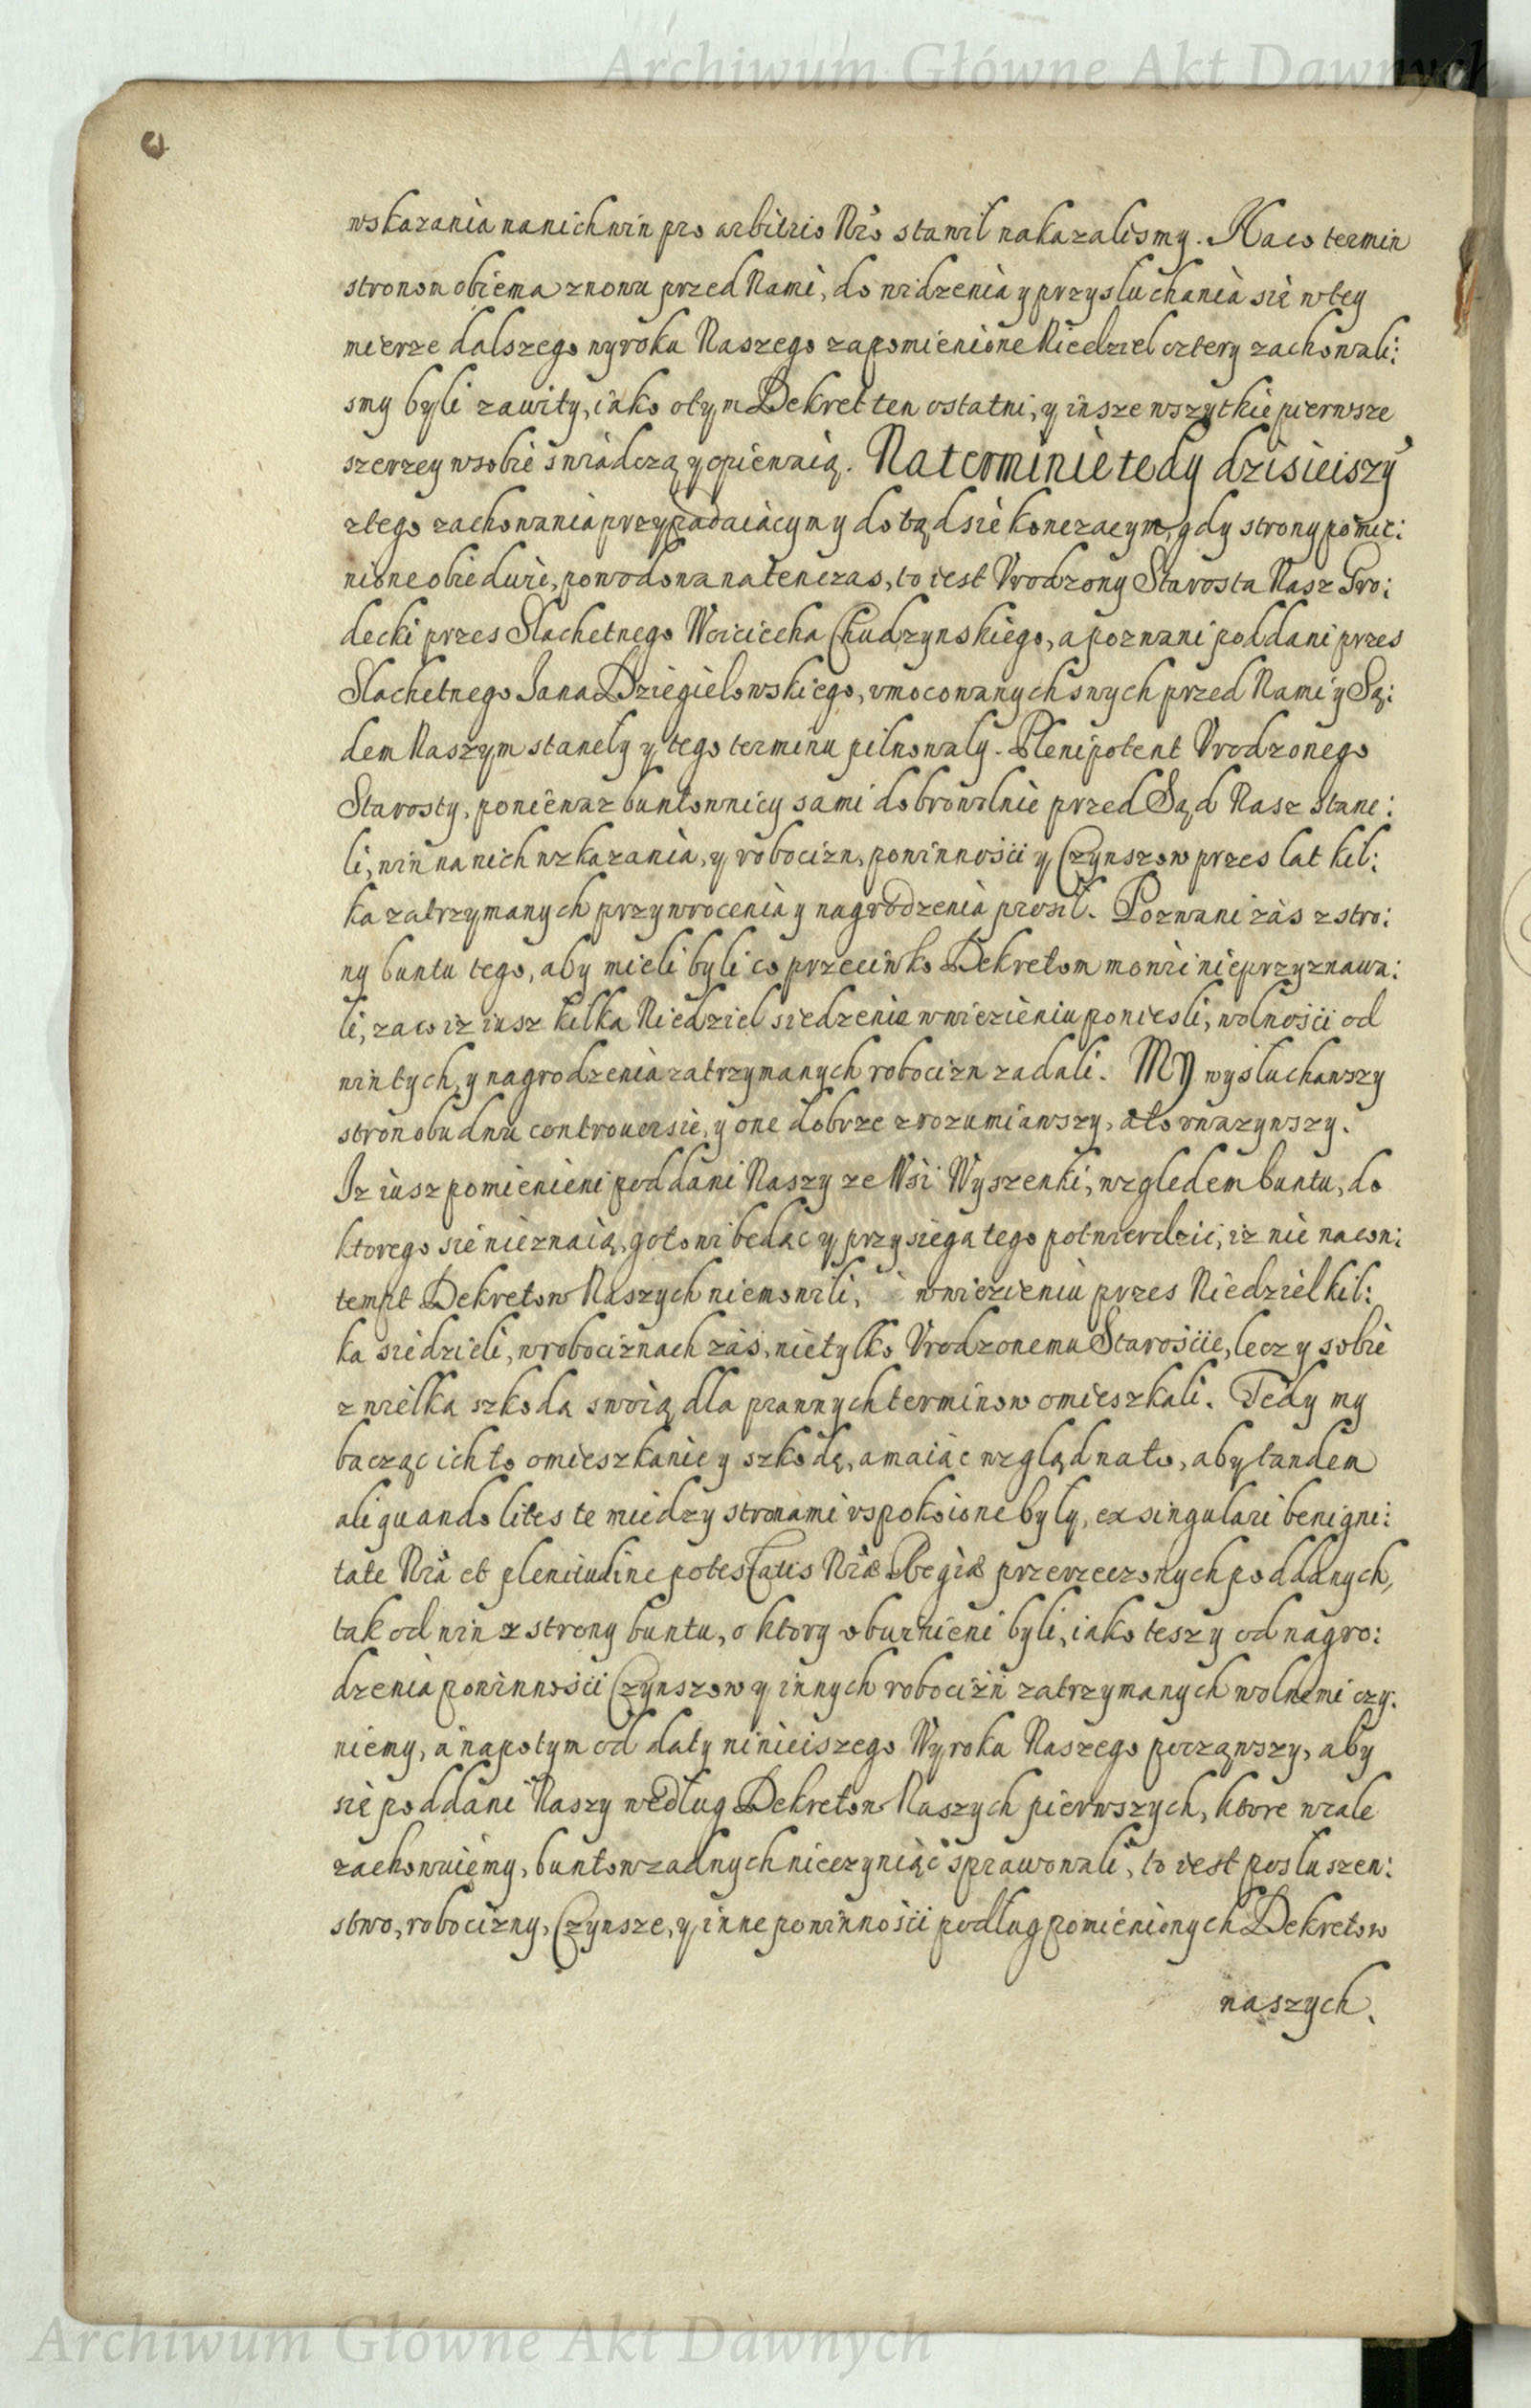 Archiwum Główne Akt Dawnych
wskazania na nich win pro arbitrio Nro stawił nakazalismy. Na co termin
stronom obiema znowu przed Nami, do widzenia y przysłuchania się w tey
mierze dalszego wyroku Naszego za pomienione Niedziel cztery zachowali:
smy byli zawity, iako o tym Dekret ten ostatni, y insze wszytkie pierwsze
szerzey w sobie swiadczą y opiewaią. Na terminie tedy dzisieiszy
z tego zachowania przypadaiącym y dotąd sie konczacym, gdy strony pomie:
nione obiedwie, powodowa na tenczas, to iest Vrodzony Starosta Nasz Gro:
decki przes Slachetnego Woiciecha Chudzynskiego, a poznani poddani przes
Slachetnego Jana Dziegielowskiego, vmocowanych swych przed Nami y Są:
dem Naszym stanely y tego terminu pilnowaly. Plenipotent Vrodzonego
Starosty, poniewaz buntownicy sami dobrowolnie przed Sąd Nasz stane:
li, win na nich wzkazania, y robocizn, powinnosci y Czynszow przes lat kil:
ka zatrzymanych przywrocenia y nagrodzenia prosił. Pozwani zas z stro:
ny buntu tego, aby mieli byli co przeciwko Dekretom mowic nieprzyznawa:
li, za co iz iusz kilka Niedziel siedzenia w wiezieniu poniesli, wolnosci od
win tych, y nagrodzenia zatrzymanych robocizn zadali. MY wysluchawszy
stron obudwu controuersie, y one dobrze zrozumiawszy, a to vwazywszy.
Iz iusz pomienieni poddani Naszy ze Wsi Wyszenki, wzgledem buntu, do
ktorego sie nieznaią, gotowi bedąc y przysiega tego potwierdzic, iz nie na con:
tempt Dekretow Naszych niemowili, w wiezieniu przes Niedziel kil:
ka siedzieli, w robociznach zas, nietylko Vrodzonemu Staroscie, lecz y sobie
z wielka szkoda swoią dla prawnych terminow omieszkali. Tedy my
bacząc ich to omieszkanie y szkodę, a maiąc wzgląd na to, aby tandem
aliquando lites te miedzy stronami vspokoione byly, ex singulari benigni:
tate Nra et plenitudine potestatis Nræ Regiæ przerzeczonych poddanych,
tak od win z strony buntu, o ktory obwinieni byli, iako teszy od nagro:
dzenia powinnosci Czynszow y innych robocizn zatrzymanych wolnemi czy:
niemy, a napotym od daty ninieiszego Wyroku Naszego począwszy, aby
się poddani Naszy według Dekretow Naszych pierwszych, ktore wcale
zachowuiemy, buntow zadnych nieczyniąc sprawowali, to iest posluszen:
stwo, robocizny, Czynsze, y inne powinnosci podług pomienionych Dekretow
naszych.
Archiwum Główne Akt Dawnych